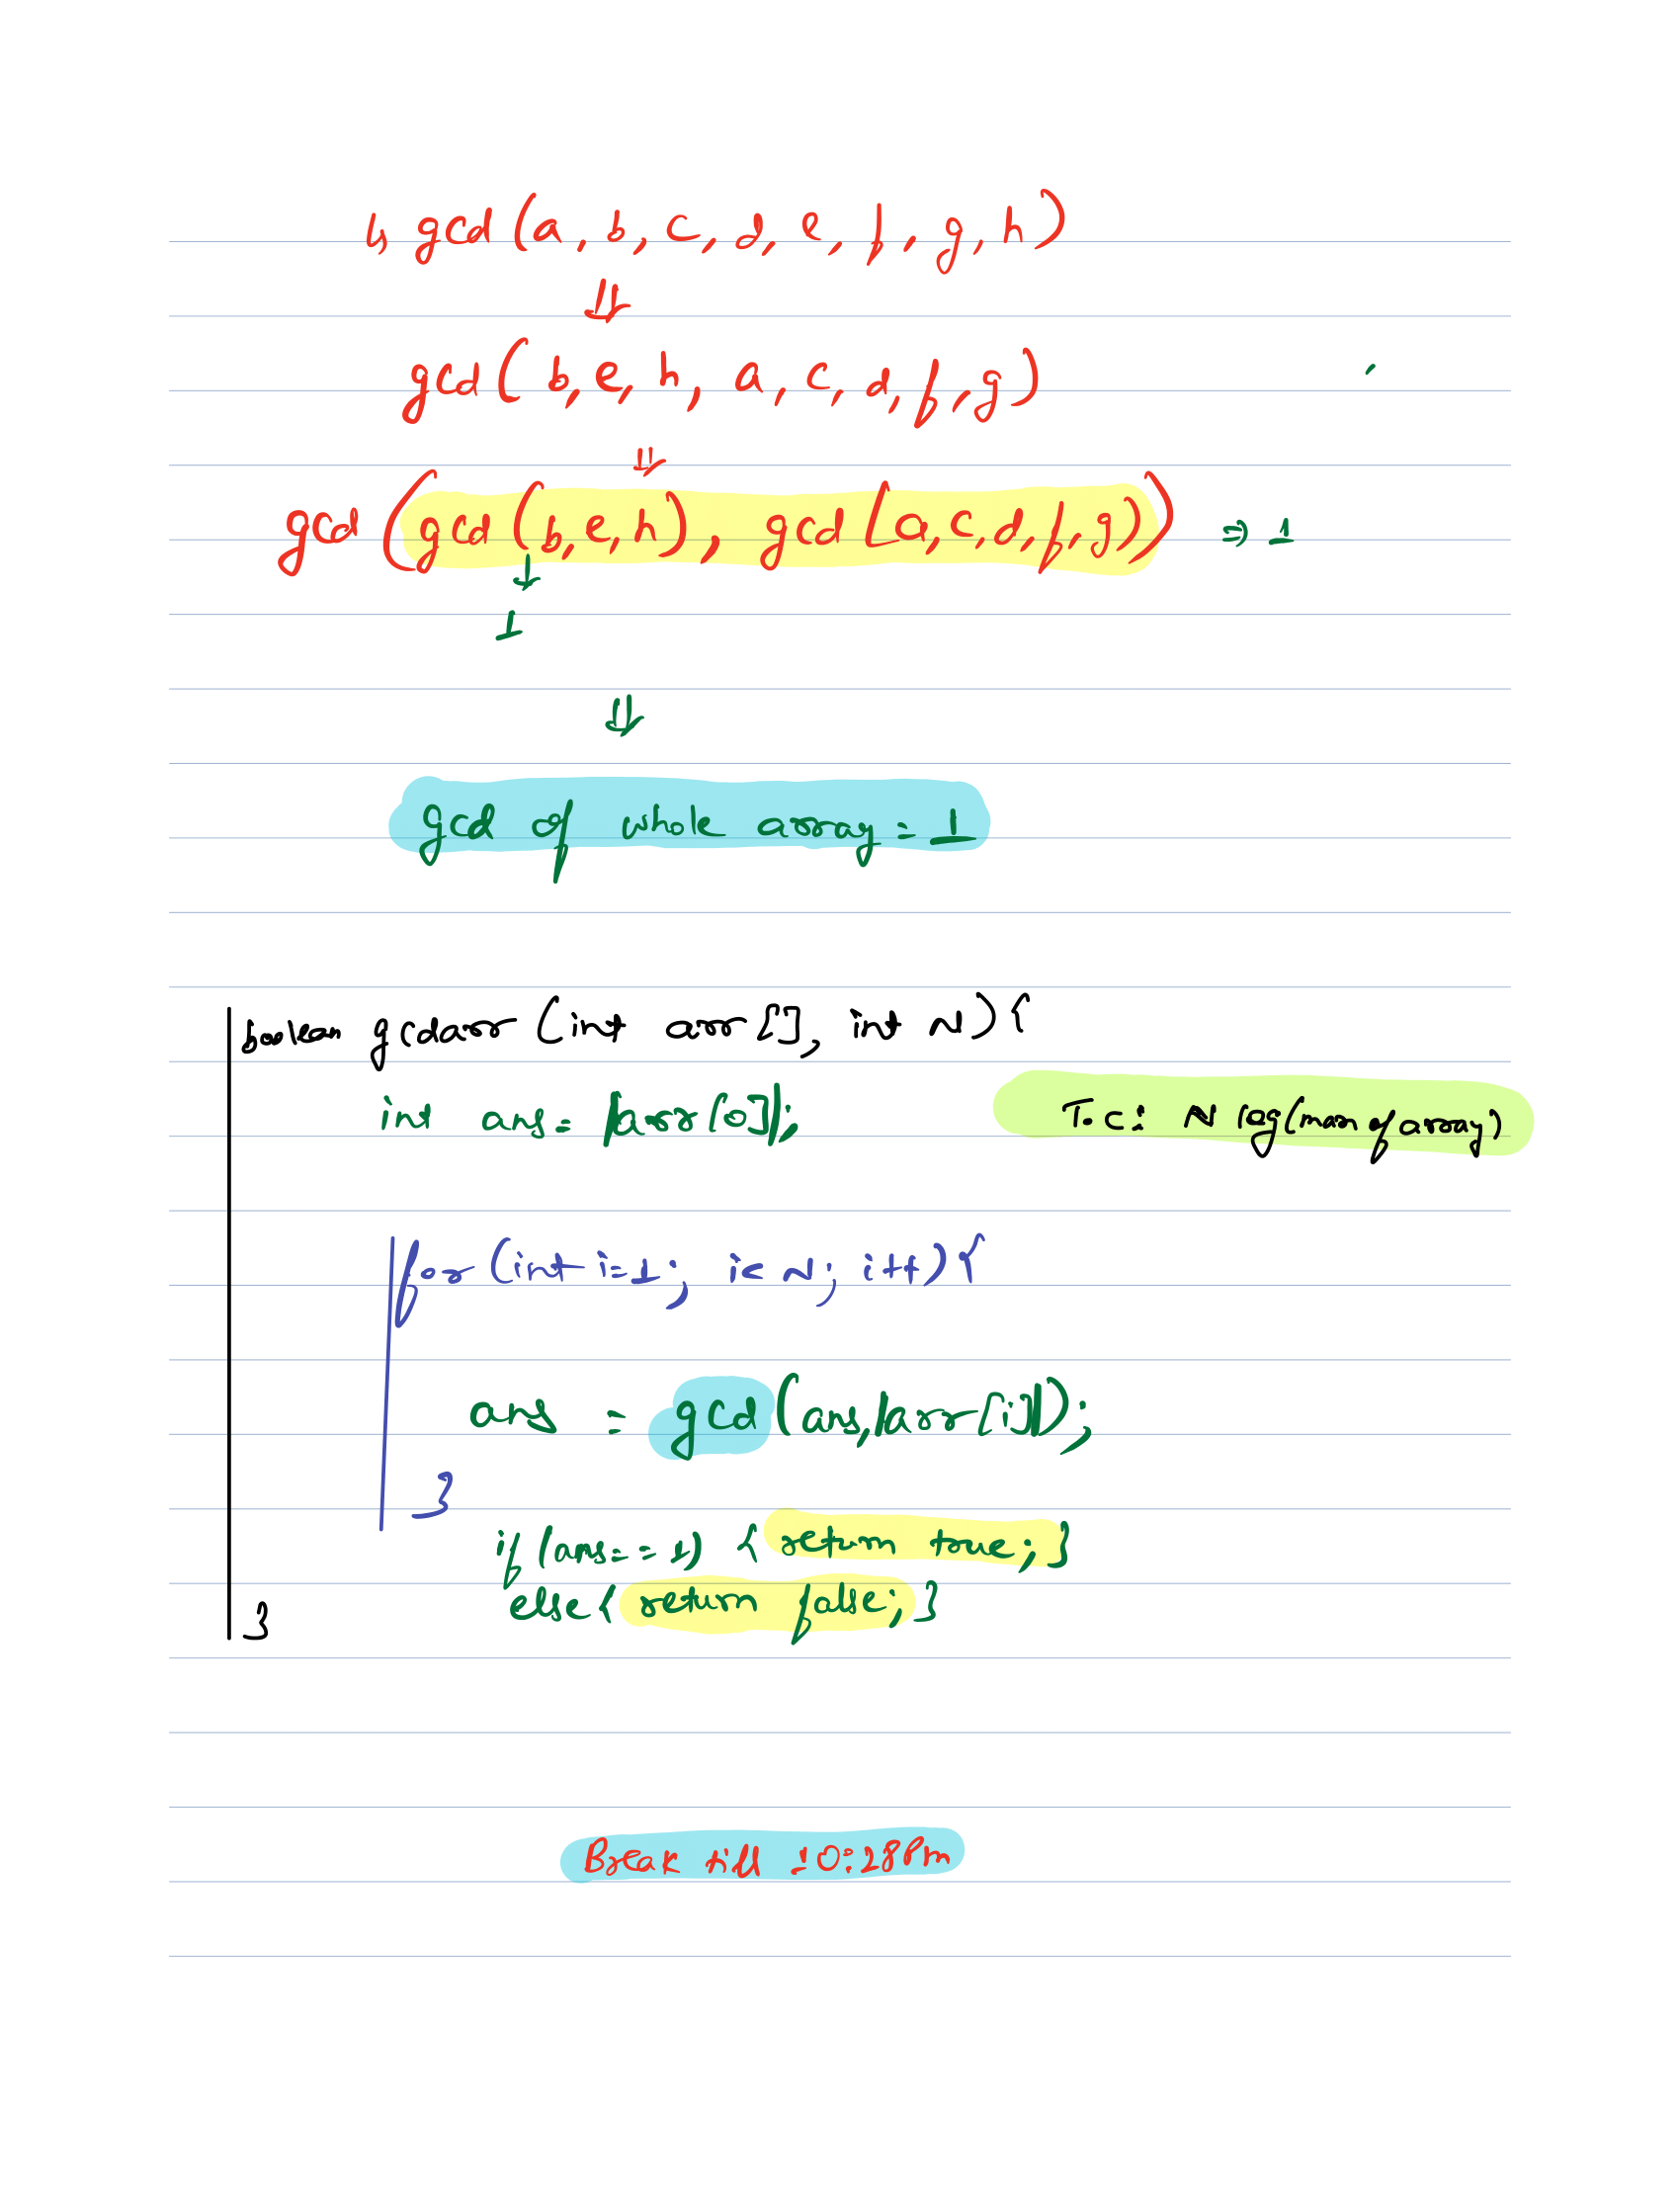 ↳ gcd(a, b, c, d, e, f, g, h)
⇓
gcd(b, e, h, a, c, d, f, g)
⇓
gcd(gcd(b, e, h), gcd(a, c, d, f, g)) ⇒ 1
↓
1
⇓
gcd of whole array = 1
boolean gcdarr (int arr[], int N) {
int ans = |arr[0]|;
T.C: N log(max of array)
for (int i=1; i< N; i++) {
ans = gcd(ans, |arr[i]|);
}
if (ans == 1) { return true; }
else { return false; }
}
Break till 10:28 Pm